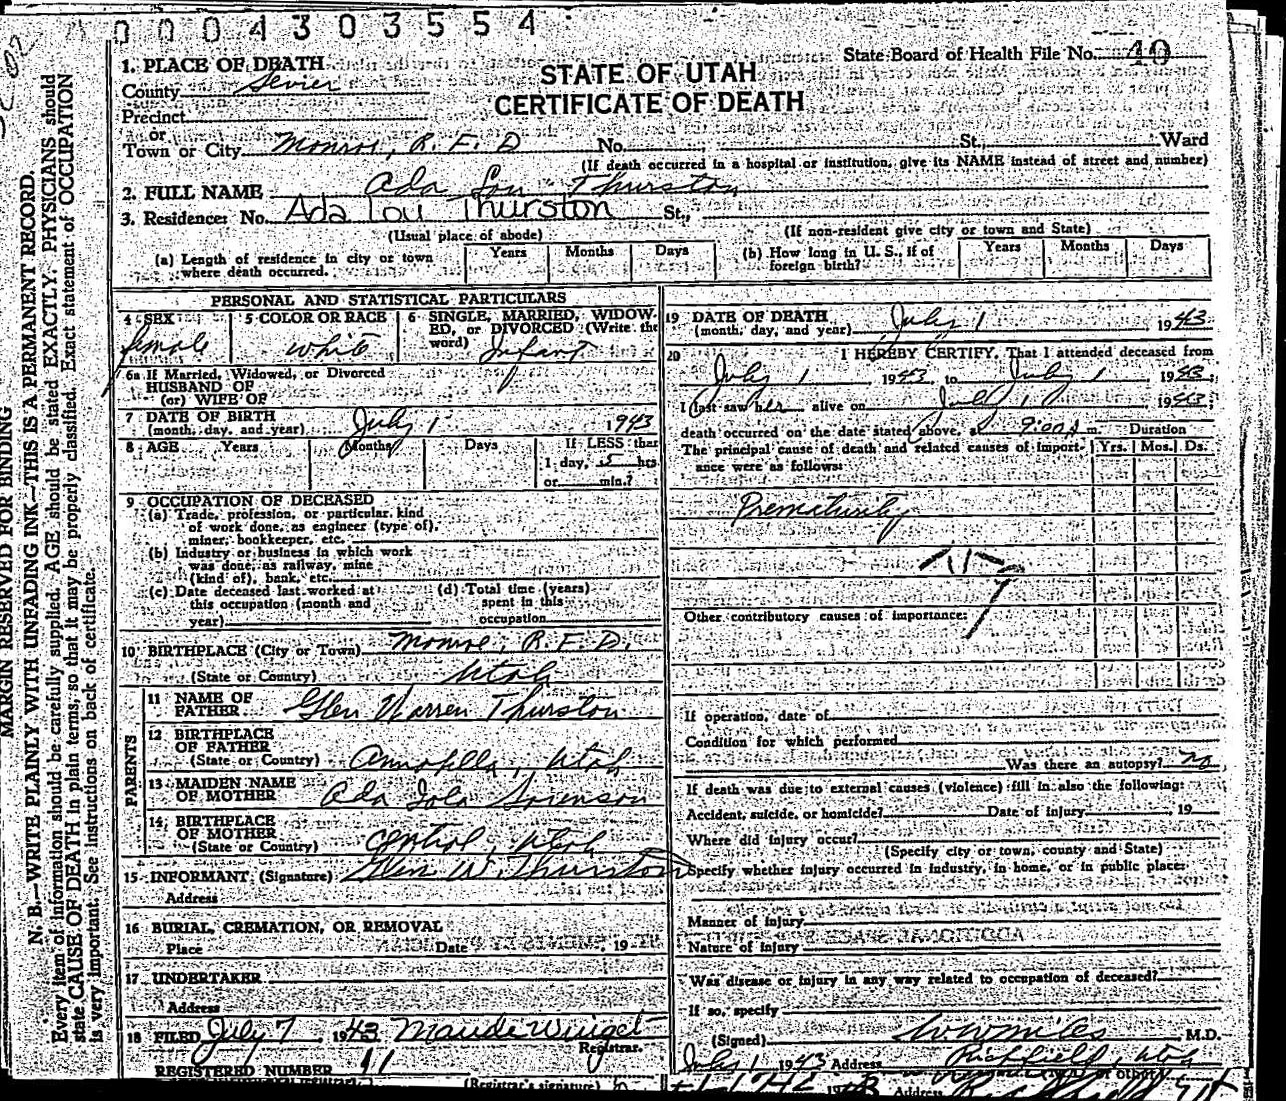 0004303554
State Board of Health File No. 40
STATE OF UTAH
CERTIFICATE OF DEATH
1. PLACE OF DEATH
County Sevier
Precinct
or
Town or City Monroe, R. F. D No. St., Ward
(If death occurred in a hospital or institution, give its NAME instead of street and number)
2. FULL NAME Ada Lou Thurston
3. Residence: No. Ada Lou Thurston St.,
(Usual place of abode) (If non-resident give city or town and State)
(a) Length of residence in city or town where death occurred. Years Months Days
(b) How long in U. S., if of foreign birth? Years Months Days
PERSONAL AND STATISTICAL PARTICULARS
4 SEX female
5 COLOR OR RACE white
6 SINGLE, MARRIED, WIDOWED, or DIVORCED (Write the word) Infant
6a If Married, Widowed, or Divorced
HUSBAND OF
(or) WIFE OF
7 DATE OF BIRTH
(month, day, and year) July 1 1943
8 AGE Years Months Days If LESS than
1 day, 5 hrs
or min.?
9 OCCUPATION OF DECEASED
(a) Trade, profession, or particular kind
of work done, as engineer (type of),
miner, bookkeeper, etc.
(b) Industry or business in which work
was done, as railway, mine
(kind of), bank, etc.
(c) Date deceased last worked at
this occupation (month and
year)
(d) Total time (years)
spent in this
occupation
10 BIRTHPLACE (City or Town) Monroe, R. F. D.
(State or Country) Utah
PARENTS
11 NAME OF
FATHER Glen Warren Thurston
12 BIRTHPLACE
OF FATHER
(State or Country) Annabella, Utah
13 MAIDEN NAME
OF MOTHER Ada Iola Sorenson
14 BIRTHPLACE
OF MOTHER
(State or Country) Central, Utah
15 INFORMANT (Signature) Glen W. Thurston
Address
16 BURIAL, CREMATION, OR REMOVAL
Place Date 19
17 UNDERTAKER
Address
18 FILED July 7 1943 Maude Winget
Registrar.
REGISTERED NUMBER 11
(Registrar's signature)
19 DATE OF DEATH
(month, day, and year) July 1 1943
20 I HEREBY CERTIFY, That I attended deceased from
July 1 1943 to July 1 1943;
I last saw her alive on July 1 1943;
death occurred on the date stated above, at 9:00 a m. Duration
The principal cause of death and related causes of importance were as follows: Yrs. Mos. Ds.
Prematurity
Other contributory causes of importance:
If operation, date of
Condition for which performed
Was there an autopsy? no
If death was due to external causes (violence) fill in also the following:
Accident, suicide, or homicide? Date of injury , 19
Where did injury occur?
(Specify city or town, county and State)
Specify whether injury occurred in industry, in home, or in public place:
Manner of injury
Nature of injury
Was disease or injury in any way related to occupation of deceased?
If so, specify
(Signed) W. W. Miles M.D.
July 1 1943 Address Richfield, Utah
Address
MARGIN RESERVED FOR BINDING
N. B.—WRITE PLAINLY WITH UNFADING INK—THIS IS A PERMANENT RECORD.
Every item of information should be carefully supplied. AGE should be stated EXACTLY. PHYSICIANS should
state CAUSE OF DEATH in plain terms, so that it may be properly classified. Exact statement of OCCUPATION
is very important. See instructions on back of certificate.